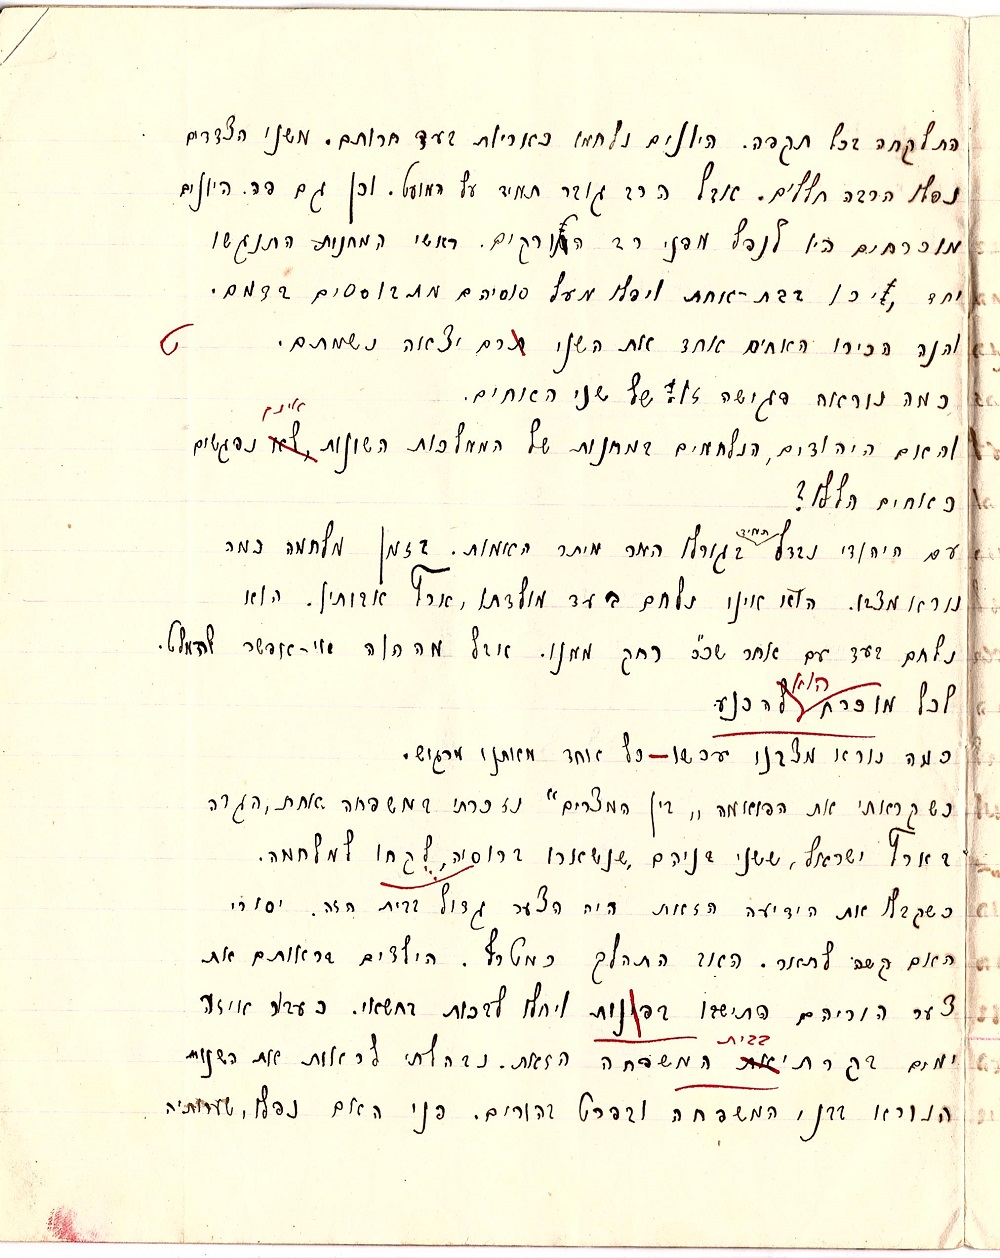 התלקחה בכל תקפה. היונים נלחמו כאריות בעד חרותם. משני הצדדים
נפלו הרבה חללים. אבל הרב גובר תמיד על המועט. וכן גם פה. היונים
מוכרחים היו לנפל מפני רב התורקים. ראשי המחנות התנגשו
יחד, בבת-אחת ויפלו מעל סוסיהם מתבוססים בדמם.
והנה הכירו האחים אחד את השני טרם יצאה נשמתם. ט
כמה נוראה פגישה זו של שני האחים.
אינם
והאם היהודים, הנלחמים במחנות של הממלכות השונות, לא נפגשים
כאחים הללו?
תמיד
עם היהודי נבדל בגורלו המר מיתר האמות. בזמן מלחמה כמה
נורא מצבו. הוא אינו נלחם בעד מולדתו, ארץ אבותיו. הוא
נלחם בעד עם אחר שכ"כ רחק ממנו. אבל מה הוה אי-אפשר להמלט.
הוא
לכל מוכרח להכנע
כמה נורא מצבנו עכשו – כל אחד מאתנו מרגיש.
כשקראתי את הפואמה „בין המצרים" נזכרתי במשפחה אחת, הגרה
בארץ ישראל, ששני בניהם, שנשארו ברוסיה, לקחו למלחמה.
כשקבלו את הידיעה הזאת היה הצער גדול בבית הזה. יסורי
האם קשה לתאר. האב התהלך כמטרף. הילדים בראותם את
צער הוריהם התישבו בפנות ויחלו לבכות בחשאי. כעבר איזה
בבית
ימים בקרתי את המשפחה הזאת. נבהלתי לראות את השנוי
הנורא בבני המשפחה ובפרט בהורים. פני האם נפלו, שערותיה